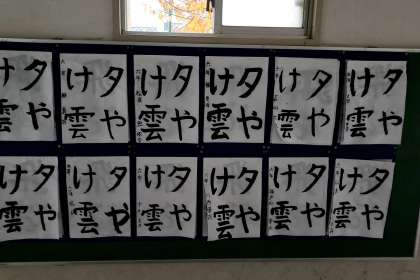 夕や
け雲
夕や
け雲
夕や
け雲
夕や
け雲
夕や
け雲
夕や
け雲
夕や
け雲
夕や
け雲
夕や
け雲
夕や
け雲
夕や
け雲
夕や
け雲